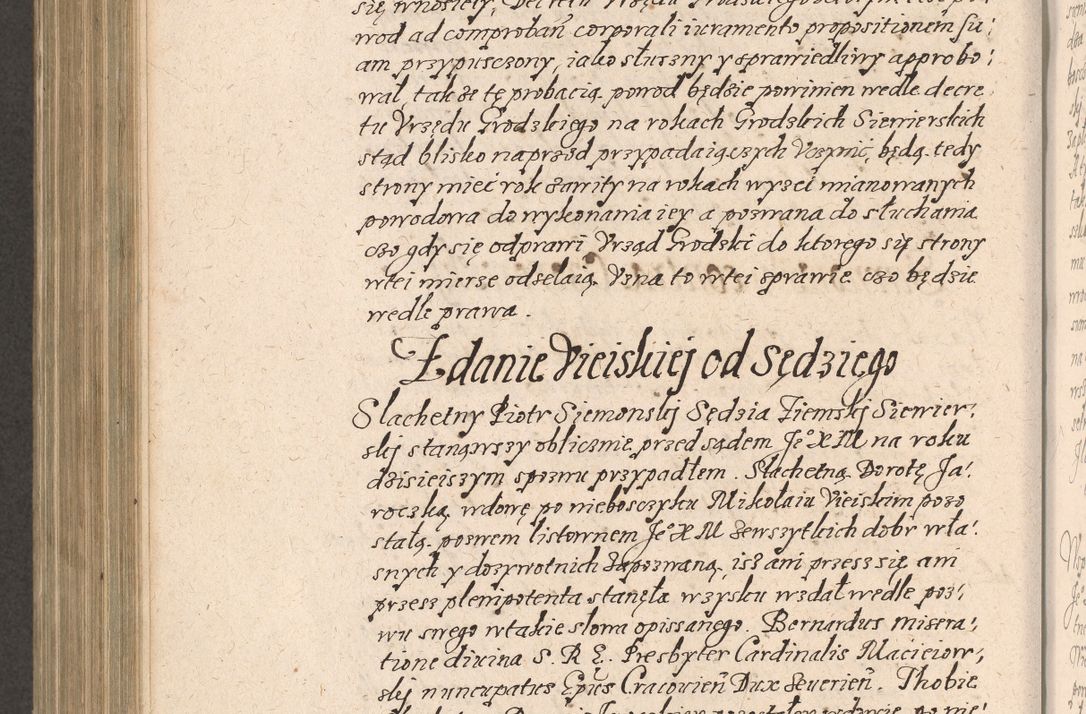 wod ad comproban̄ corporali iuramento propositionem su:
am przypusczony, iako słuszny y sprawiedliwy approbo:
wał, tak że tę probacią powod będzie powinien wedle decre
tu Vrzędu Grodzkiego na rokach Grodzkich Siewierskich
stąd blisko naprzod przypadaiączych Vczynić, będą tedy
strony mieć rok zawity na rokach wyżei mianowanych
powodowa do wykonania iey a pozwana do słuchania
czo gdy się odprawi Vrząd Grodzki do ktorego się strony
wtei mierze odselaią. Vzna to wtei sprawie czo będzie
wedle prawa.
Zdanie Vieiskiej od Sędziego
Slachetny Piotr Siemonskj Sędzia Ziemskj Siewier:
skj stanąwszy oblicznie przed sądem Jº X M na roku
dzisieiszym spozwu przypadłem. Slachetną Dorotę Ja:
roczką wdowę po nieboszczyku Mikołaiu Vieiskim pozo
stałą. pozwem listownem Jº X M zewszytkich dobr wła:
snych y dozywotnich zapozwaną, isz ani przesz się ani
przesz plenipotenta stanęła wzysku wzdał wedle poz:
wu swego wtakie słowa opissanego. Bernardus misera:
tione diuina S. R. E. Presbyter Cardinalis Macieiow:
skj nuncupatus Ep̄us Cracouien̄ Dux Seuerien̄. Thobie